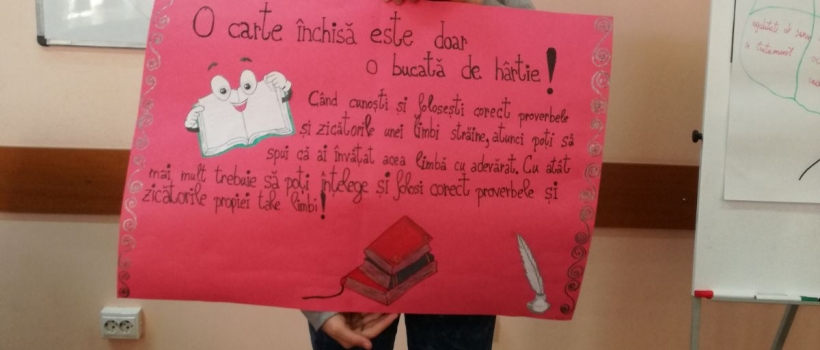 O carte închisă este doar
o bucată de hârtie!
Când cunoști și folosești corect proverbele
și zicătorile unei limbi străine, atunci poți să
spui că ai învățat acea limbă cu adevărat. Cu atât
mai mult trebuie să poți înțelege și folosi corect proverbele și
zicătorile propiei tale limbi!